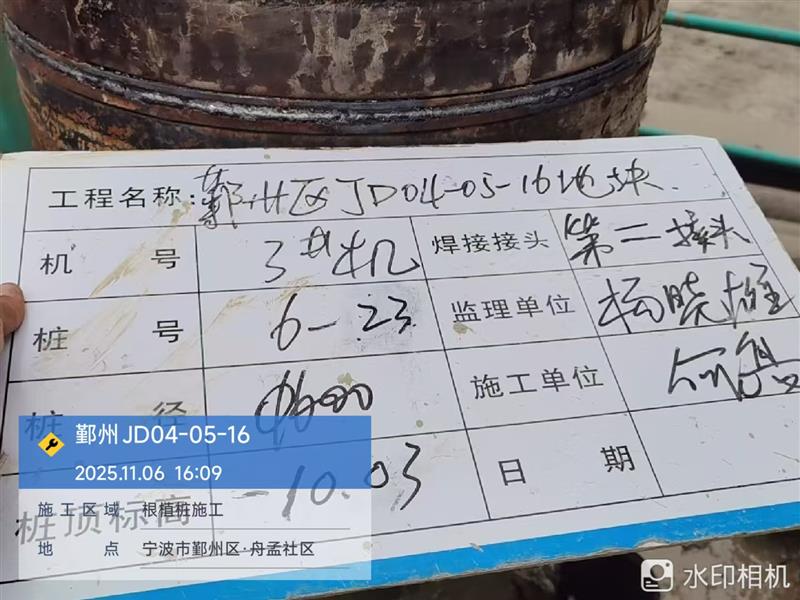 工程名称:鄞州区JD04-05-16地块.
机号 3#机 焊接接头 第二接头
桩号 6-23 监理单位 杨晓雄
桩径 Φ600 施工单位
桩顶标高 -10.03 日期
鄞州 JD04-05-16
2025.11.06 16:09
施工区域 根植桩施工
地点 宁波市鄞州区·舟孟社区
水印相机